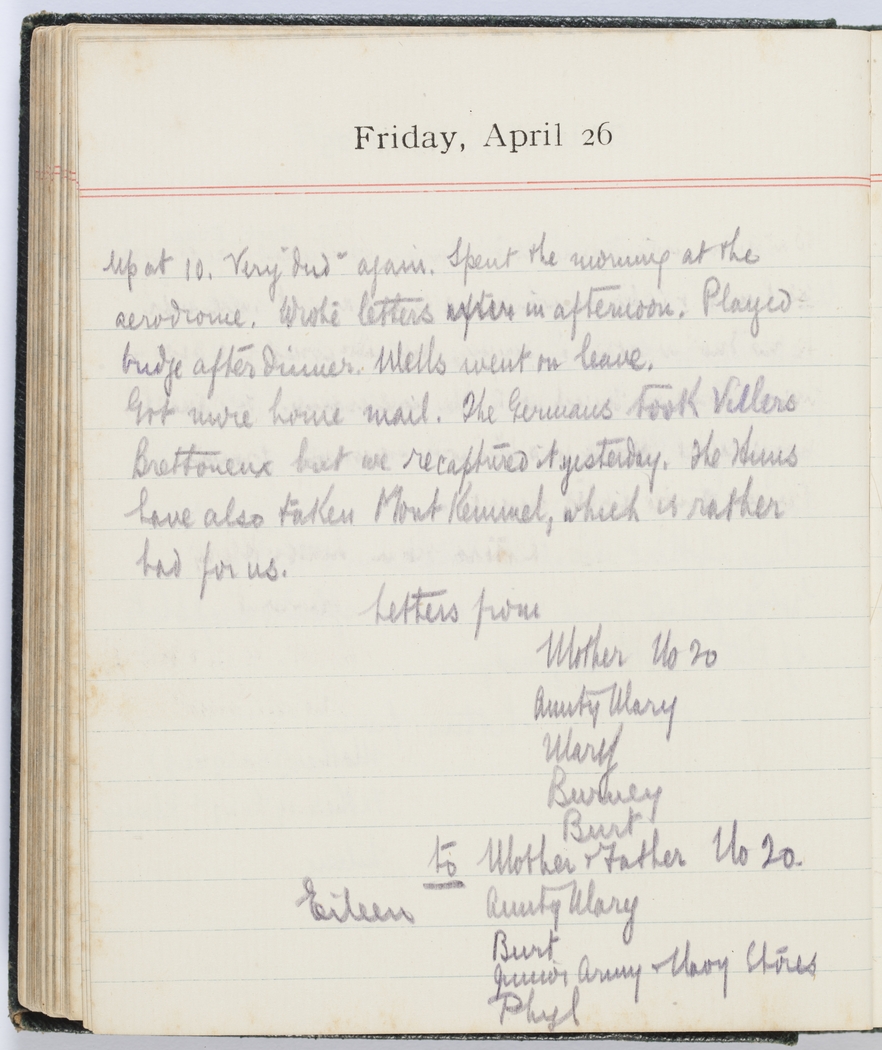 Friday, April 26
Up at 10. Very "dud" again. Spent the morning at the
aerodrome. Wrote letters after in afternoon. Played
bridge after dinner. Wells went on leave.
Got more home mail. The Germans took Villers
Brettoneux but we recaptured it yesterday. The Huns
have also taken Mont Kemmel, which is rather
bad for us.
Letters from
Mother No 20
Aunty Mary
Mary
Burney
Burt
to Mother & Father No 20.
Eileen Aunty Mary
Burt
Junior Army & Navy Stores
Phyl